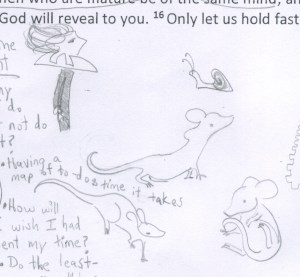 men who are mature be of the same mind, and
God will reveal to you. 16 Only let us hold fast
me
nt
my
do
not do
t?
• Having a
map of to-dos time it takes
• How will
wish I had
ent my time?
• Do the least-